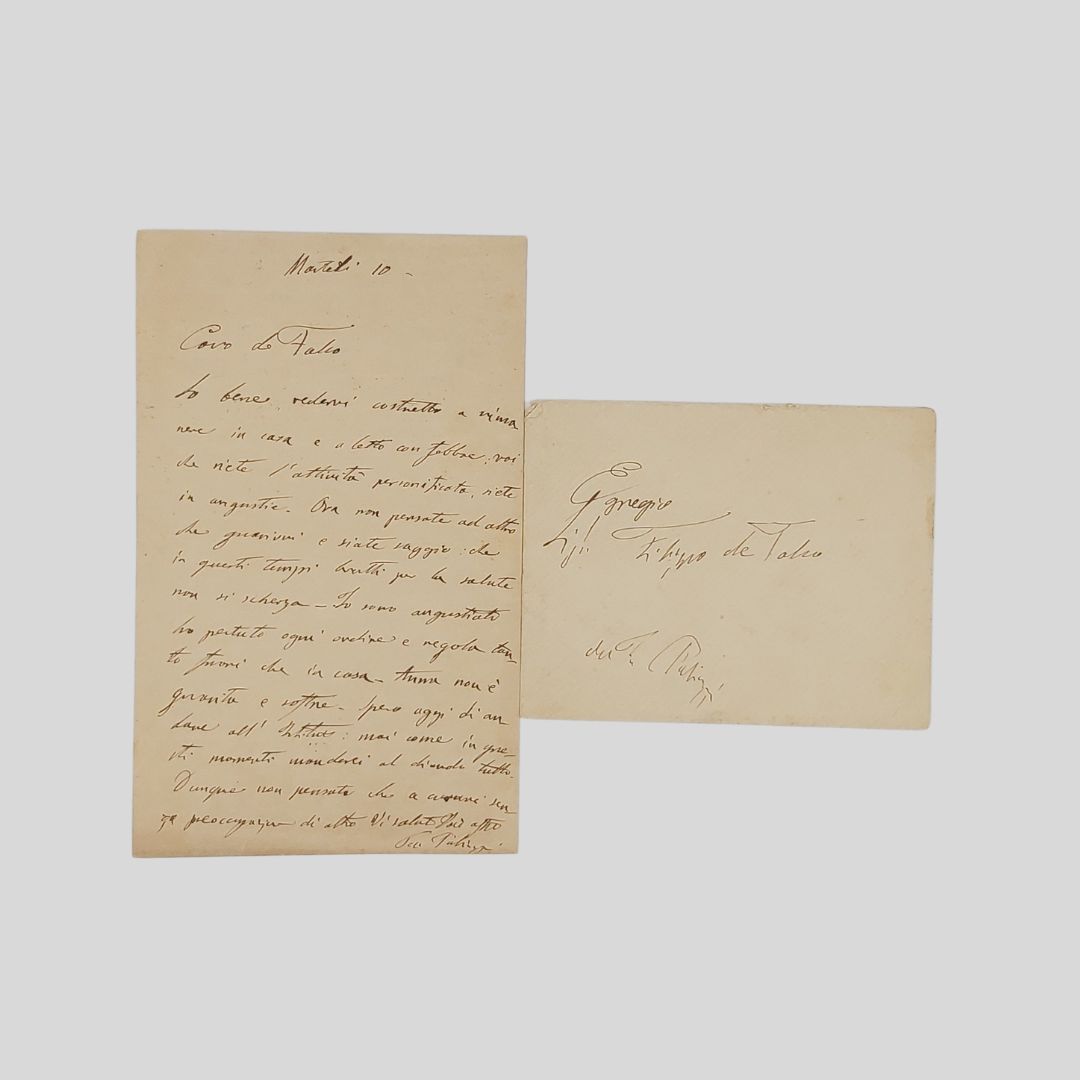 Martedì 10 -
Caro de Falco
So bene vedervi costretto a rima
nere in casa e a letto con febbre; voi
che siete l'attività personificata, siete
in angustie. Ora non pensate ad altro
che guarirvi e siate saggio: che
in questi tempi brutti per la salute
non si scherza - Io sono angustiato
ho perduto ogni ordine e regola tan-
to fuori che in casa - Anna non è
guarita e soffre - Spero oggi di an
dare all' Istituto: mai come in que-
sti momenti manderei al diavolo tutto.
Dunque non pensate che a curarvi sen
za preoccuparvi di altro Vi saluto affto
Palizzi
Egregio
Sig! Filippo de Falco
Palizzi